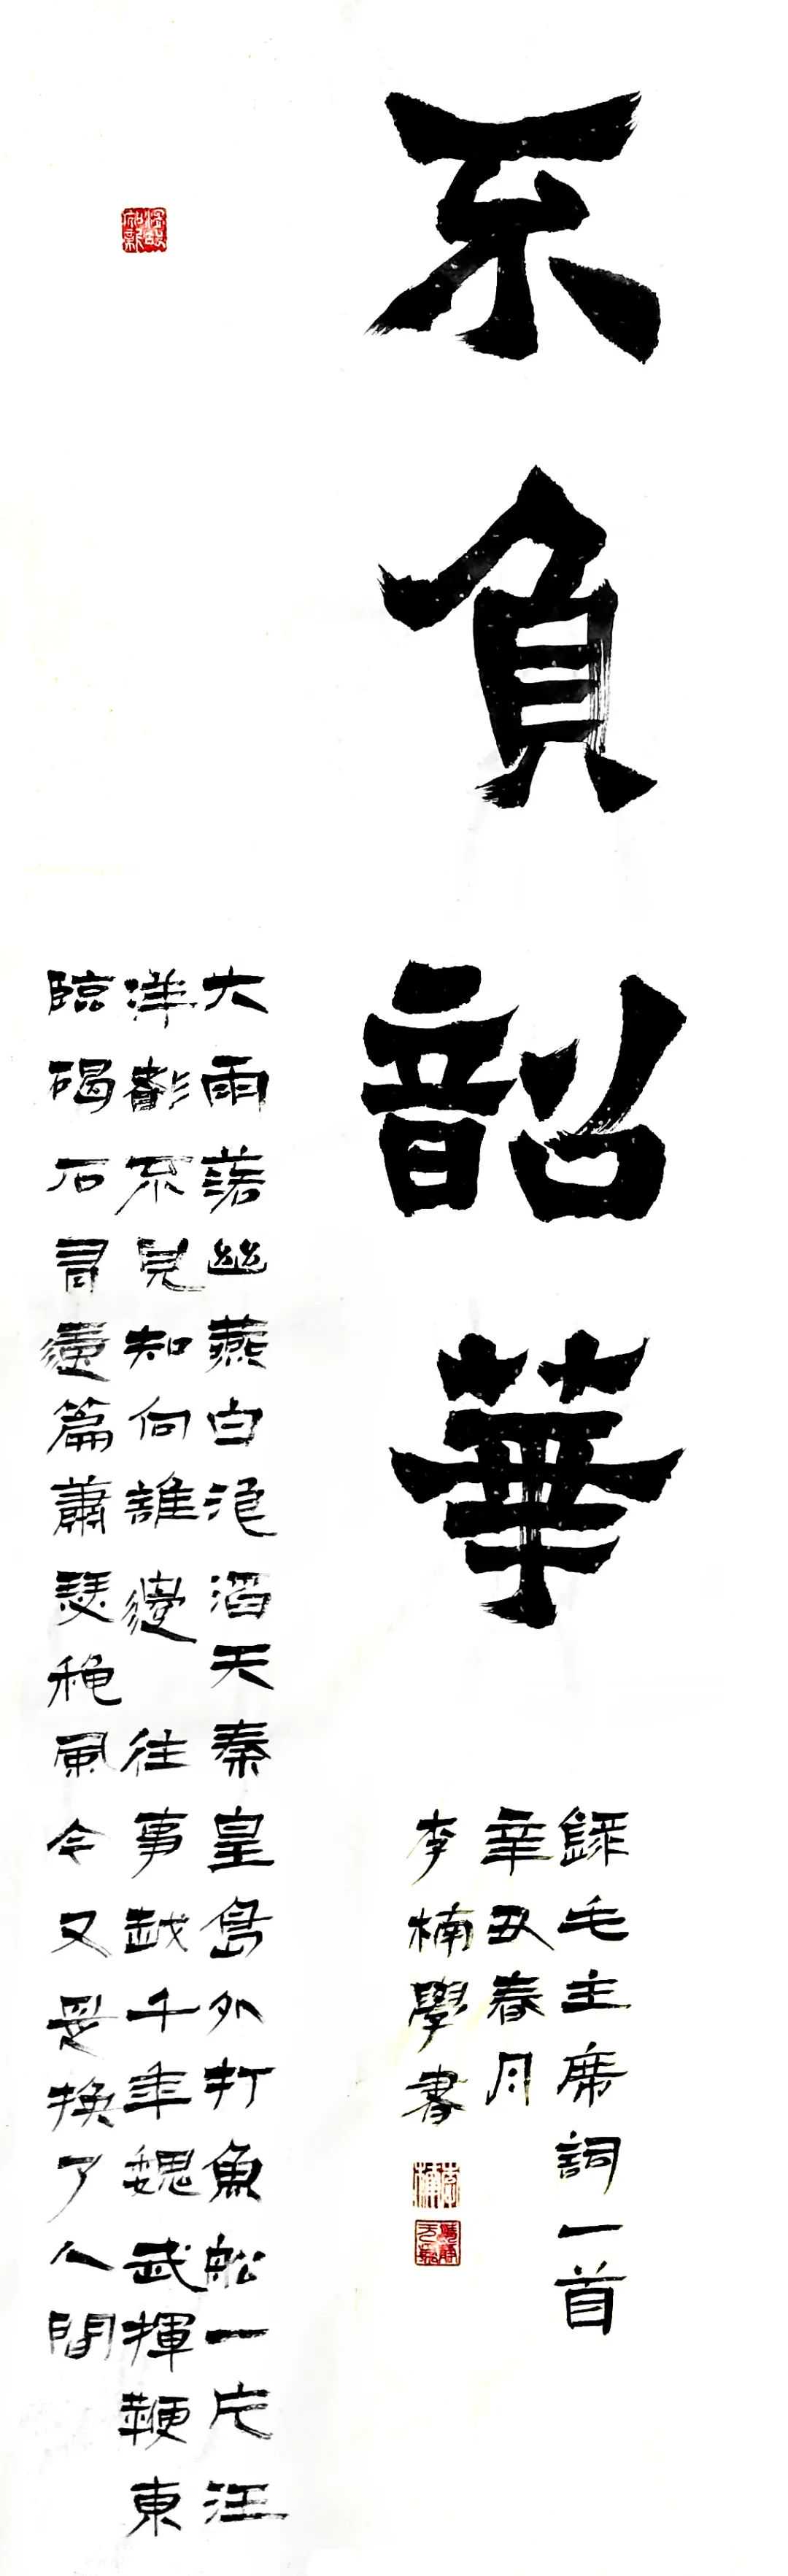 不負韶華
錄毛主席詞一首
辛丑春月
李楠學書
李楠
大雨落幽燕白浪滔天秦皇島外打魚舩一片汪
洋都不見知向誰邊往事越千年魏武揮鞭東
臨碣石有遺篇蕭瑟穐風今又是換了人間
溫故知新